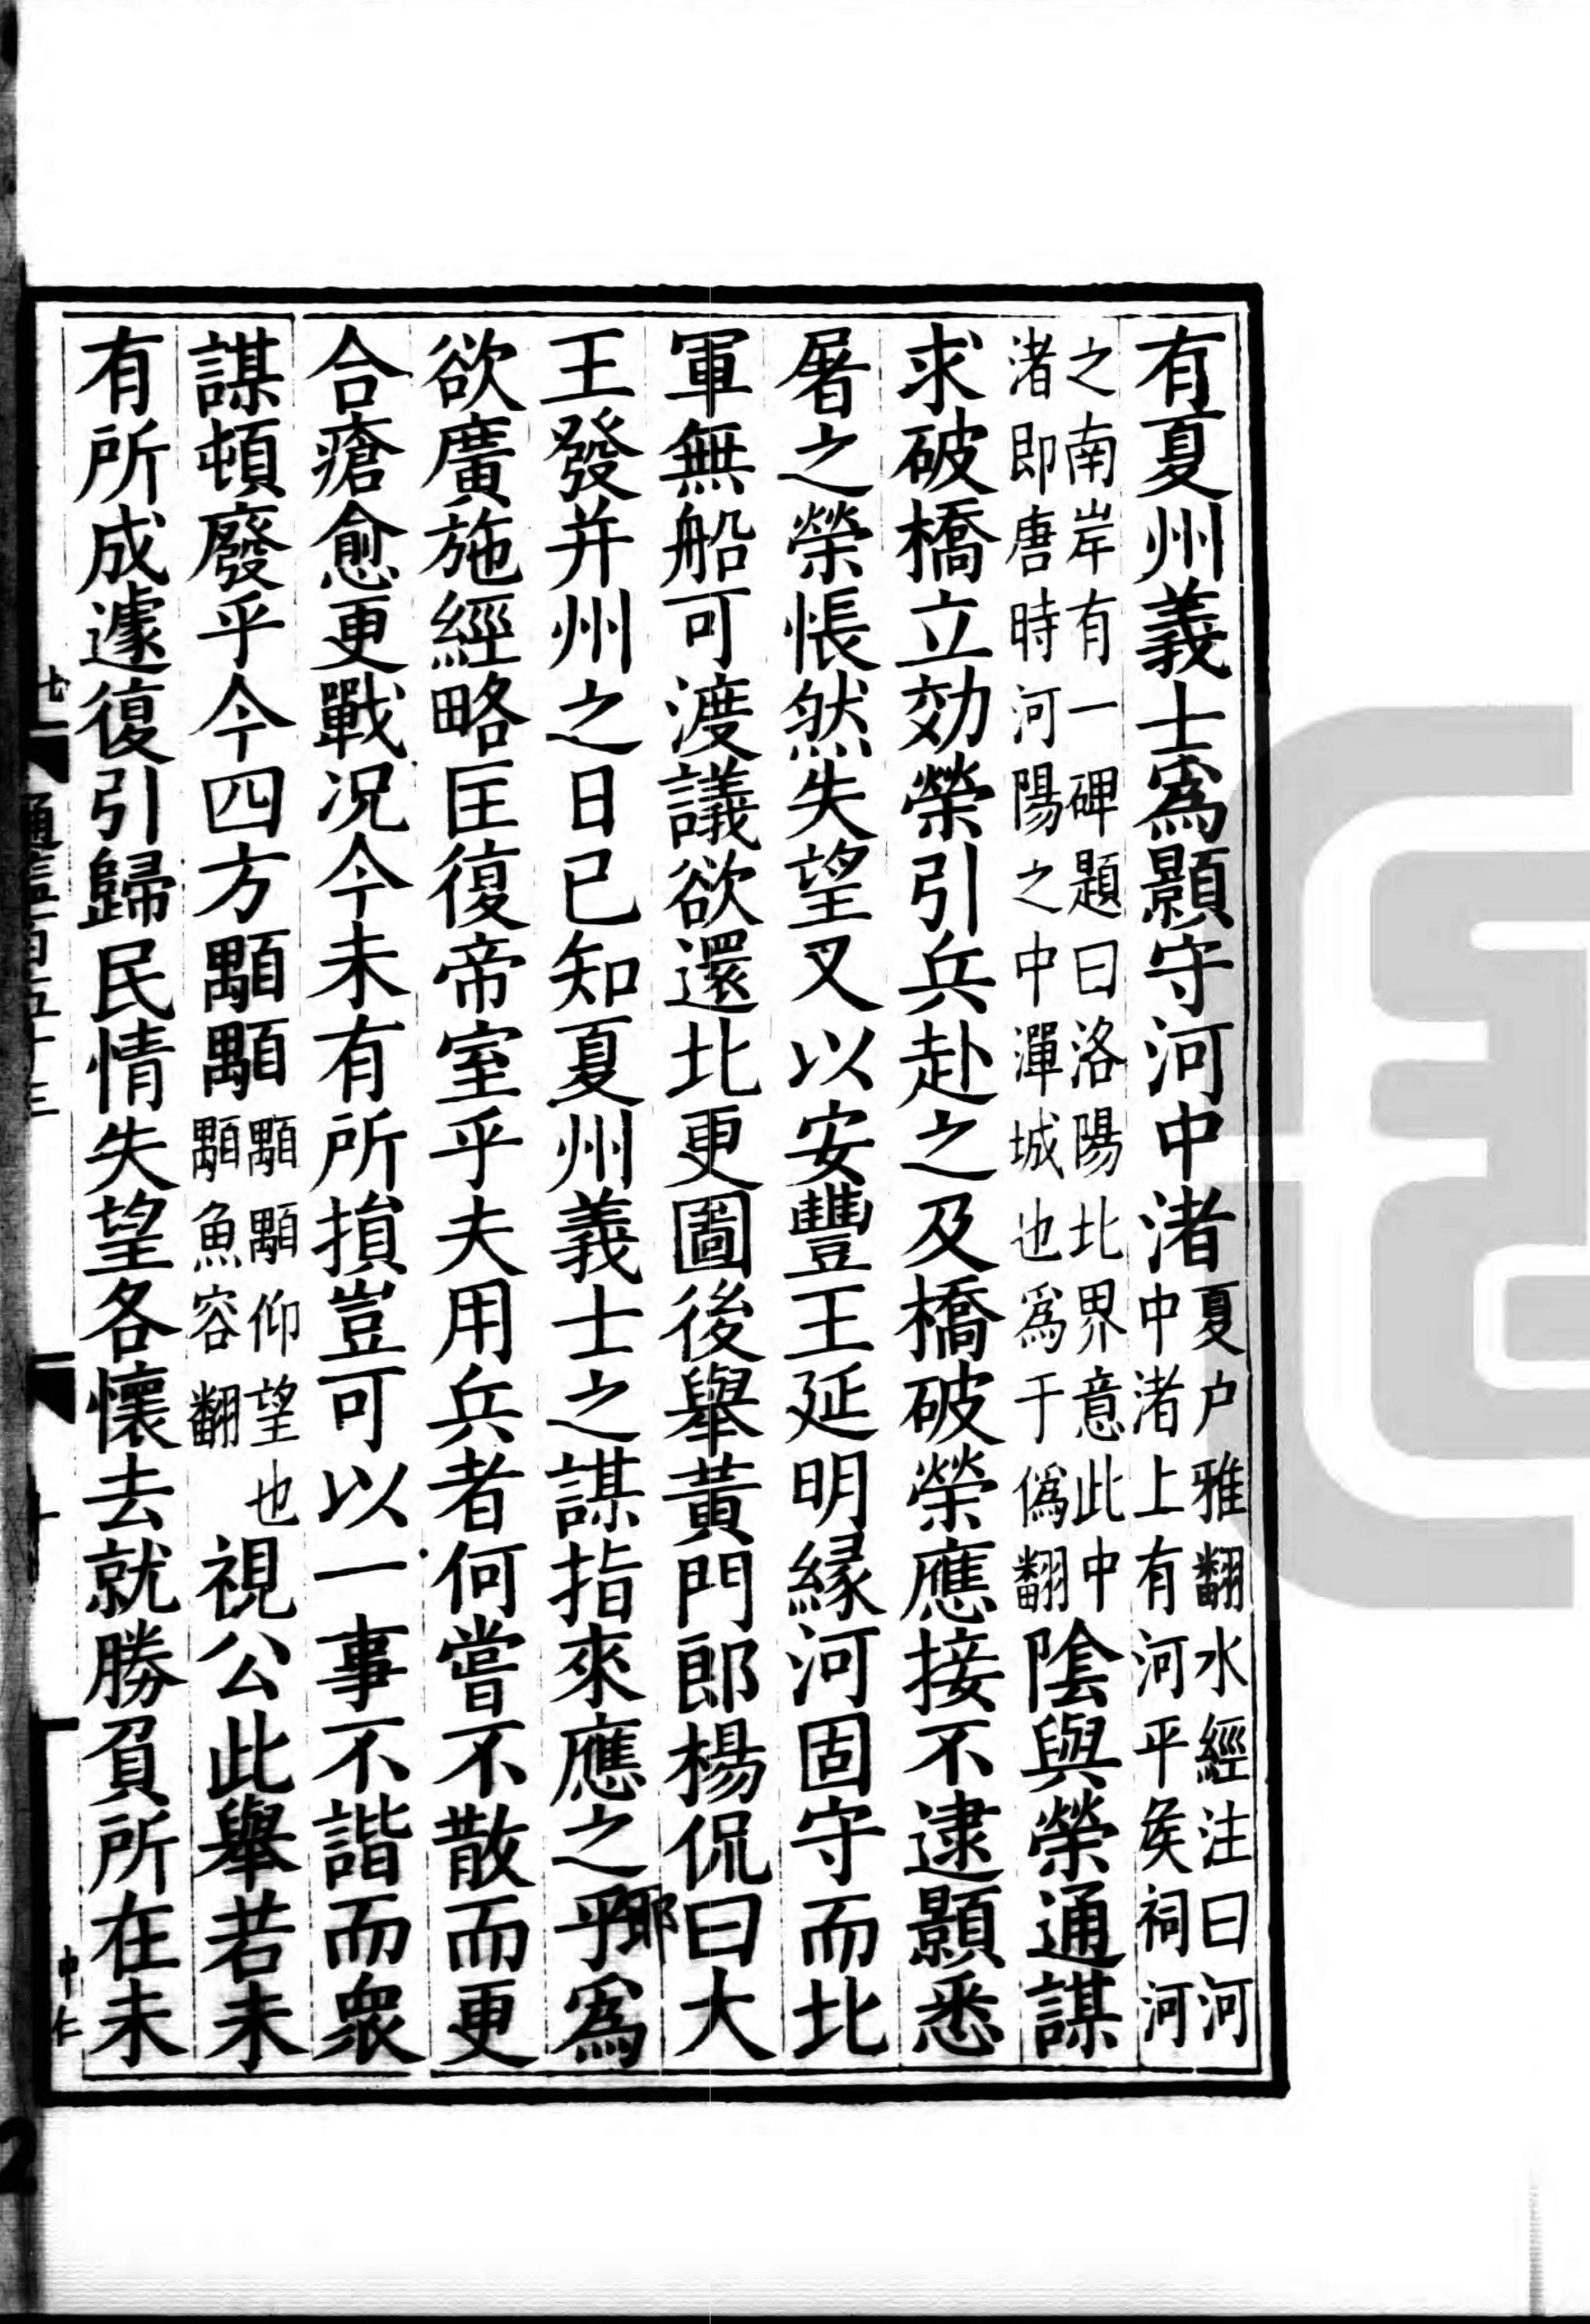 有夏州義士爲顥守河中渚夏户雅翻水經注曰河中渚上有河平矦祠河
之南岸有一碑題曰洛陽北界意此中渚即唐時河陽之中潬城也爲于僞翻陰與榮通謀
求破橋立効榮引兵赴之及橋破榮應接不逮顥悉
屠之榮悵然失望又以安豐王延明緣河固守而北
軍無船可渡議欲還北更圖後舉黃門郎楊侃曰大
王發并州之日已知夏州義士之謀指來應之乎耶爲
欲廣施經略匡復帝室乎夫用兵者何嘗不散而更
合瘡愈更戰况今未有所損豈可以一事不諧而衆
謀頓廢乎今四方顒顒顒顒仰望也顒魚容翻視公此舉若未
有所成遽復引歸民情失望各懷去就勝負所在未